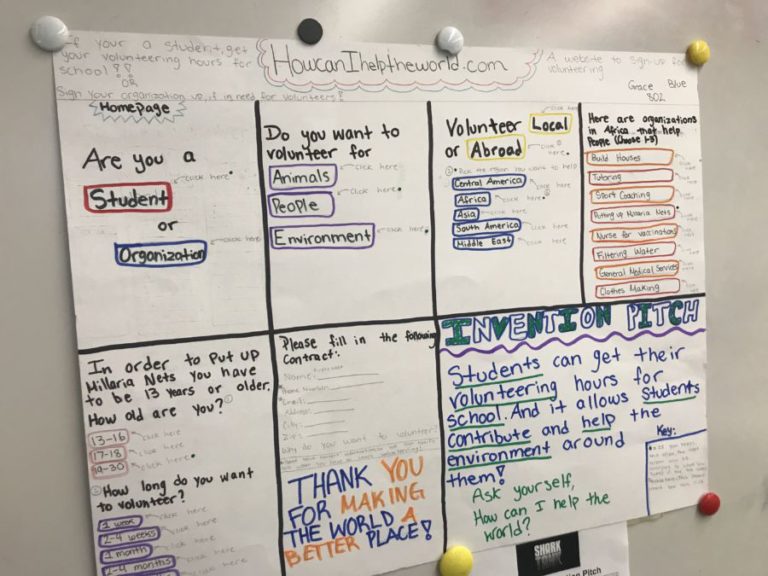 If your a student, get
your volunteering hours for
school!!
OR
Sign your organization up, if in need for volunteers!
HowcanIhelptheworld.com
A website to sign-up for
volunteering
Grace Blue
802
Homepage
Are you a
Student
click here
or
Organization
click here
Do you want to
volunteer for
Animals
click here
People
click here
Environment
click here
click here
Volunteer Local
or Abroad
click
here
Pick the region you want to help
Central America
click here
Africa
click here
Asia
click here
South America
click here
Middle East
click here
Here are organizations
in Africa that help
People (Choose 1-3)
Build Houses
Tutoring
Sport Coaching
Putting up Millaria Nets
Nurse for vaccinations
Filtering Water
General Medical Services
Clothes Making
In order to put up
Millaria Nets you have
to be 13 years or older.
How old are you?
13-16
click here
17-18
click here
19-30
click here
How long do you want
to volunteer?
1 week
click here
2-4 weeks
click here
1 month
click here
2-4 months
click here
Please fill in the following
Contract:
Name:
Phone Number:
Email:
Address:
City:
Why do you want to volunteer?
THANK YOU
FOR MAKING
THE WORLD A
BETTER PLACE!
INVENTION PITCH
Students can get their
volunteering hours for
school. And it allows students
contribute and help the
environment around
them!
Ask yourself,
How can I help the
world?
Key:
SHARK
TANK
Pitch